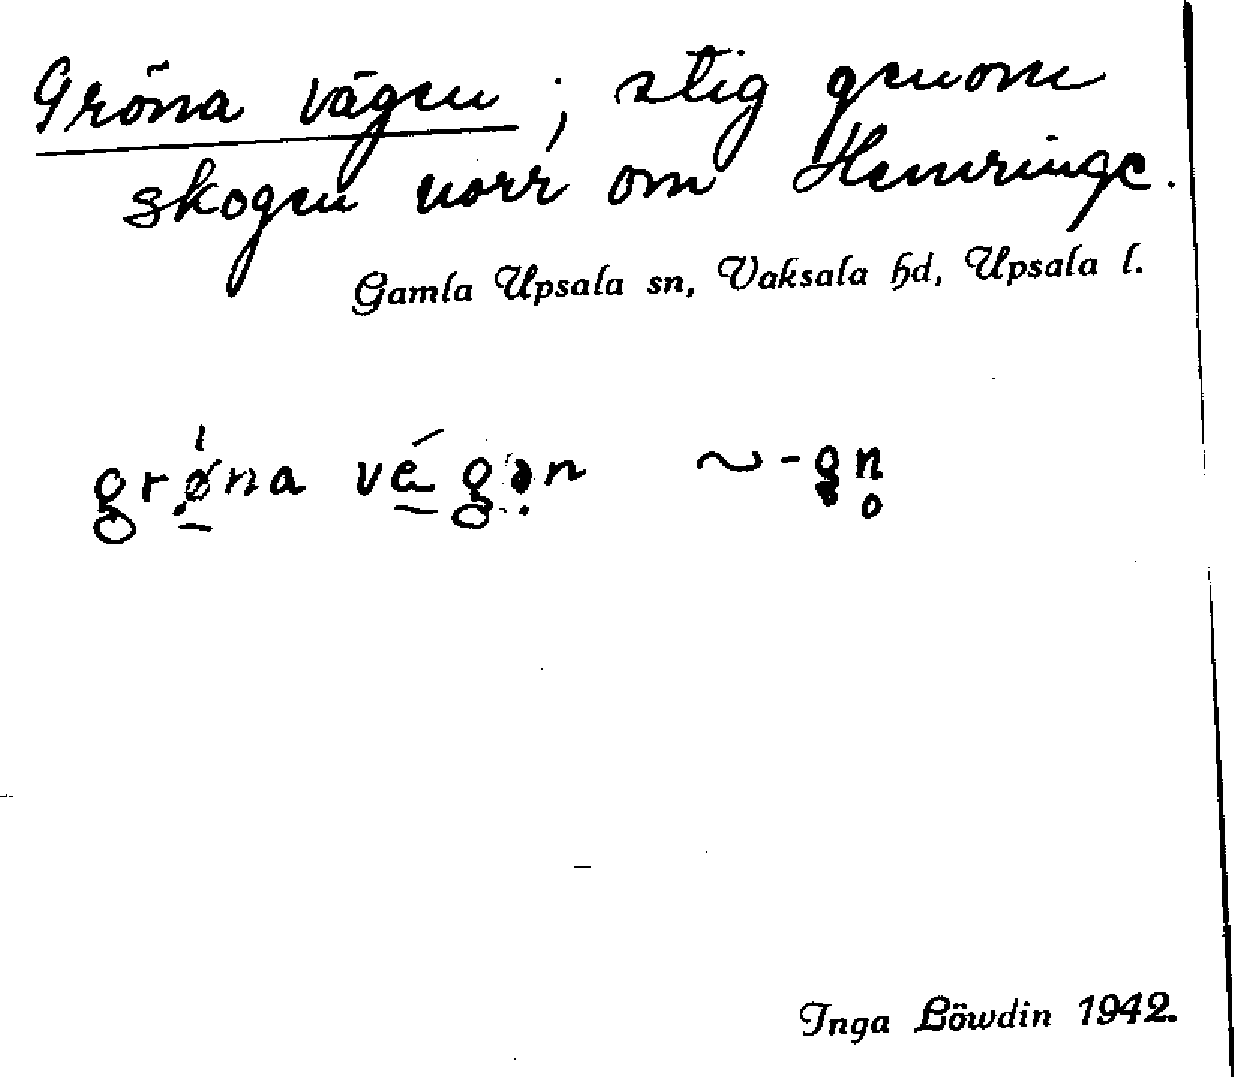 Gröna vägen ; stig genom
skogen norr om Hemringe.
Gamla Upsala sn, Vaksala hd, Upsala l.
grøna végən ~-gn
Inga Löwdin 1942.